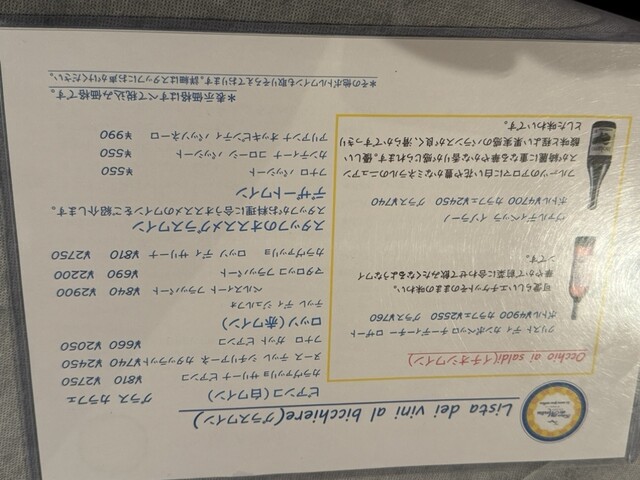 Lista dei vini al bicchiere(グラスワイン)
ビアンコ(白ワイン) グラス カラフェ
カラヴァリョ サリーナ ビアンコ ¥810 ¥2750
ヌース デッレ シチリエ ネーロ カタラット ¥740 ¥2450
フナロ ガット ビアンコ ¥660 ¥2050
ロッソ(赤ワイン)
テッレ ディ ジュルフォ
ベルスィート フラッパート ¥840 ¥2900
マタロッコ フラッパート ¥690 ¥2200
カラヴァリョ ロッソ ディ サリーナ ¥810 ¥2750
スタッフのオススメグラスワイン
スタッフがお料理に合うオススメのワインをご紹介します。
デザートワイン
フナロ パッシート ¥550
カンティーナ コローシ パッシート ¥550
アリアンナ オッキピンティ パッソネーロ ¥990
*表示価格はすべて税込み価格です。
*その他ボトルワインも取りそろえております。詳細はスタッフにお声がけください。
Occhio ai saldi(イチオシワイン)
クリスト ディ カンポベッロ チーディーチー ロザート
ボトル¥4900 カラフェ¥2550 グラス¥760
可愛らしいエチケットそのままの味わい。
華やかで前菜に合わせて飲みたくなるようなワイ
ンです。
ヴァルディベッラ イソラーノ
ボトル¥4700 カラフェ¥2450 グラス¥740
フルーツのアロマに白い花や豊かなミネラルのニュアン
スが綺麗に重なる華やかな香りが感じられます。優しい
酸味と程よい果実感のバランスが良く、滑らかですっきり
とした味わいです。